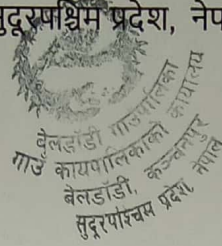 सुदूरपश्चिम प्रदेश, नेप
बेलडाँडी गाउँपालिका
गाउँ कार्यपालिकाको कार्यालय
बेलडाँडी, कञ्चनपुर
सुदूरपश्चिम प्रदेश, नेपाल